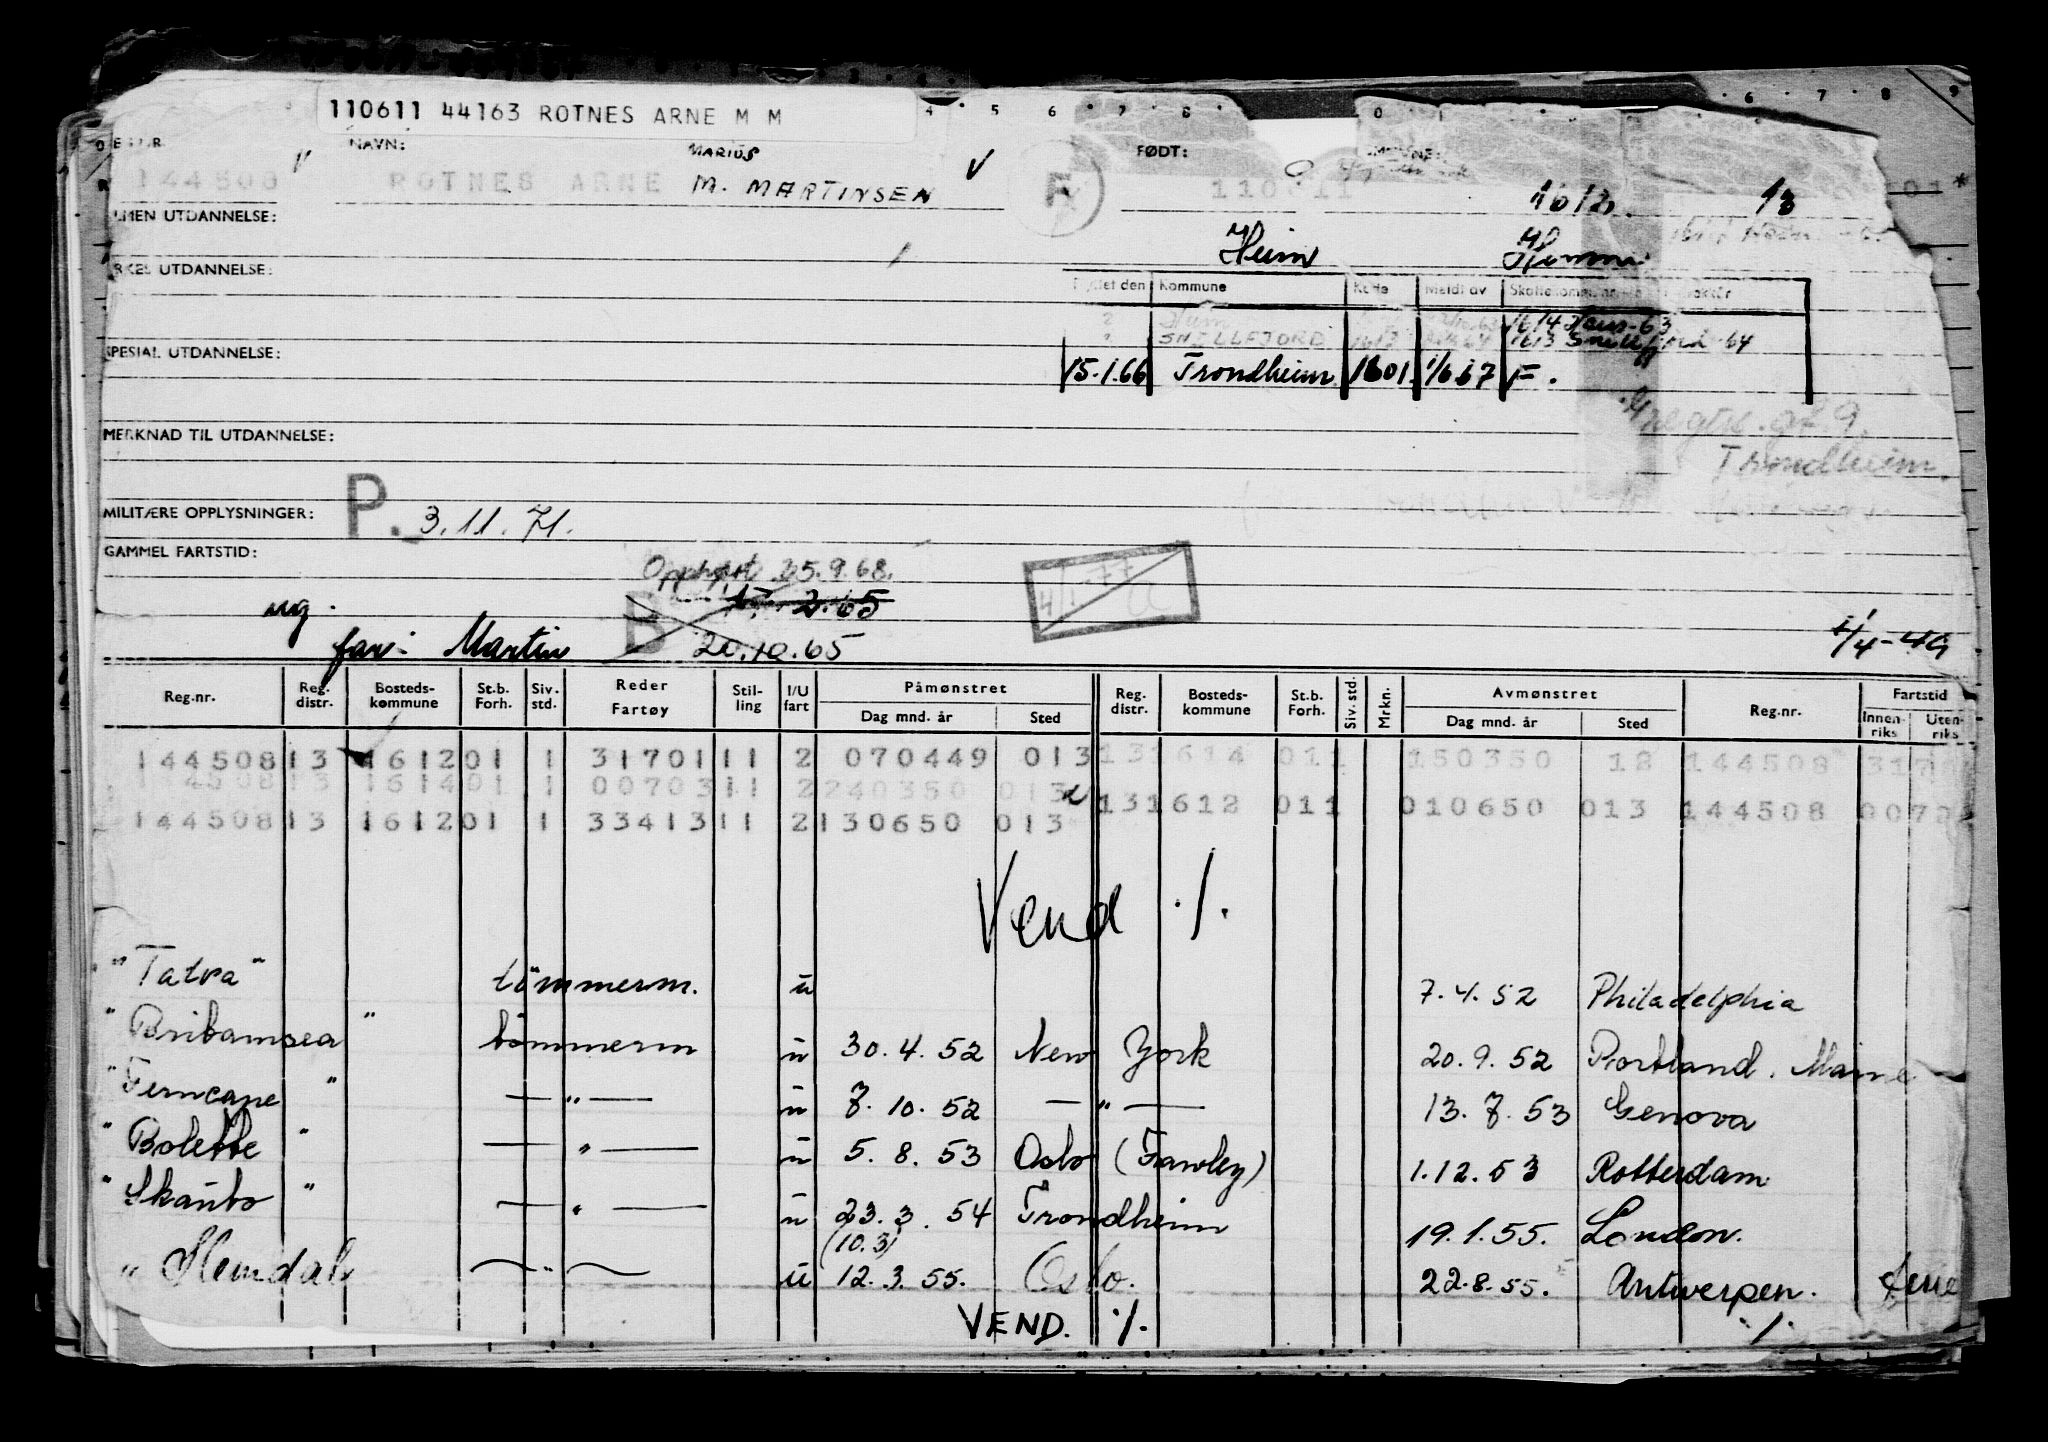 110611 44163 ROTNES ARNE M M
4 5 6 7 8 0 6 7 8 9
NAVN: MARIUS FØDT:
144508 ROTNES ARNE M. MARTINSEN V F 110611 1612. 13
LMEN UTDANNELSE:
Heim
RKES UTDANNELSE:
Kommune Meldt av
SNILLFJORD 1613 1613 Snillfjord 64
SPESIAL UTDANNELSE:
15.1.66 Trondheim 1601 1/6 67 F.
MERKNAD TIL UTDANNELSE:
Trondheim
MILITÆRE OPPLYSNINGER: P. 3.11.71.
GAMMEL FARTSTID:
Opphørt 25.9.68.
ug. 17.2.65
far: Martin B 20.10.65 1/4-49
Reg.nr. Reg. distr. Bosteds- kommune St.b. Forh. Siv. std. Reder Fartøy Stil- ling I/U fart Påmønstret Dag mnd. år Sted Reg. distr. Bosteds- kommune St.b. Forh. Siv. std. Mrkn. Avmønstret Dag mnd. år Sted Reg.nr. Fartstid Innen- riks Uten- riks
144508 13 1612 01 1 31701 11 2 070449 013 13 1614 011 150350 12 144508 317
44508 13 1614 01 1 00703 11 2 240350 013 13 1612 011 010650 013 144508 007
144508 13 1612 01 1 33413 11 2 130650 013
Vend ./.
"Tatra" tömmerm. u 7.4.52 Philadelphia
"Bribamsea" tömmerm u 30.4.52 New York 20.9.52 Portland. Maine
"Ferncape" — " — u 7.10.52 — " — 13.7.53 Genova
"Bolette" — " — u 5.8.53 Oslo (Fawley) 1.12.53 Rotterdam
"Skaubo" — " — u 23.3.54 Trondheim 19.1.55. London.
(10.3)
" Hemdal — " — u 12.3.55. Oslo. 22.8.55. Antwerpen.
VEND. ./. ./.